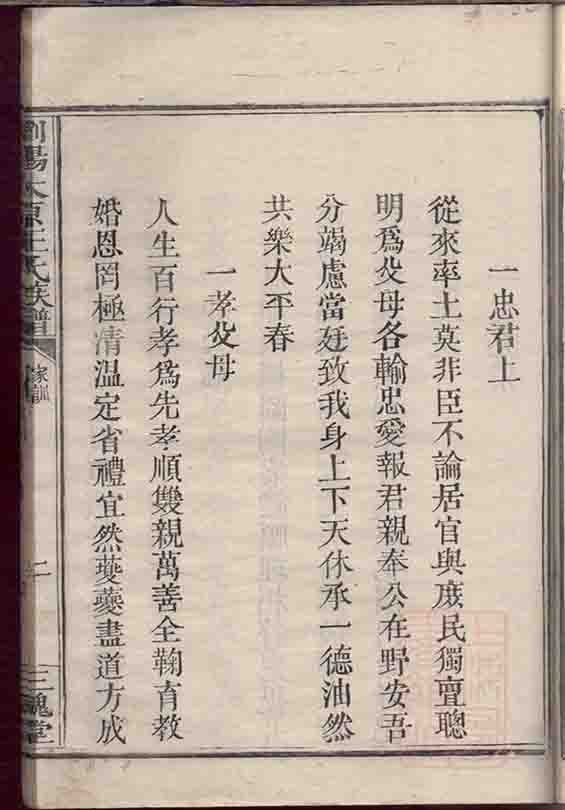 一忠君上
從來率土莫非臣不論居官與庶民獨亶聰
明爲父母各輸忠愛報君親奉公在野安吾
分竭慮當廷致我身上下天休承一德油然
共樂太平春
一孝父母
人生百行孝爲先孝順雙親萬善全鞠育教
婚恩罔極凊溫定省禮宜然夔夔盡道方成
瀏陽太原王氏族譜
家訓
二
三槐堂